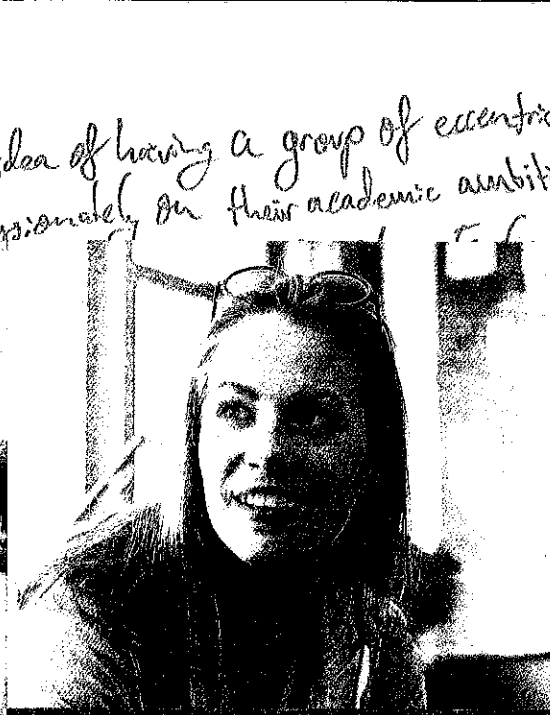 idea of having a group of eccentric
passionately on their academic ambiti